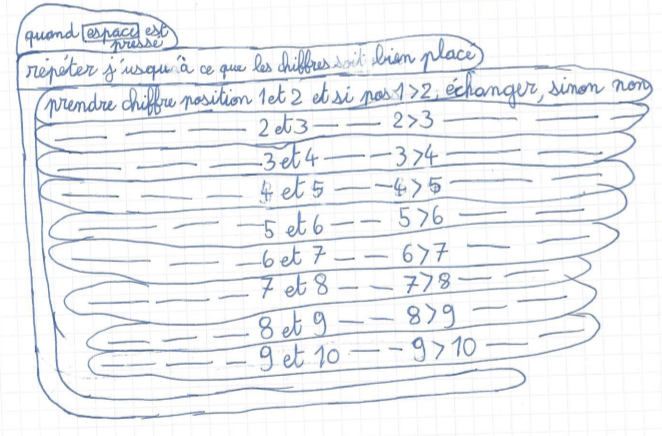 quand espace est
pressé
répéter j'usqu'à ce que les chiffres soit bien placé
prendre chiffre position 1 et 2 et si pos 1>2, échanger, sinon non
— — — 2 et 3 — — 2>3 — —
— — — 3 et 4 — — 3>4 — —
— — — 4 et 5 — — 4>5 — —
— — — 5 et 6 — — 5>6 — —
— — — 6 et 7 — — 6>7 — —
— — — 7 et 8 — — 7>8 — —
— — — 8 et 9 — — 8>9 — —
— — — 9 et 10 — — 9>10 — —